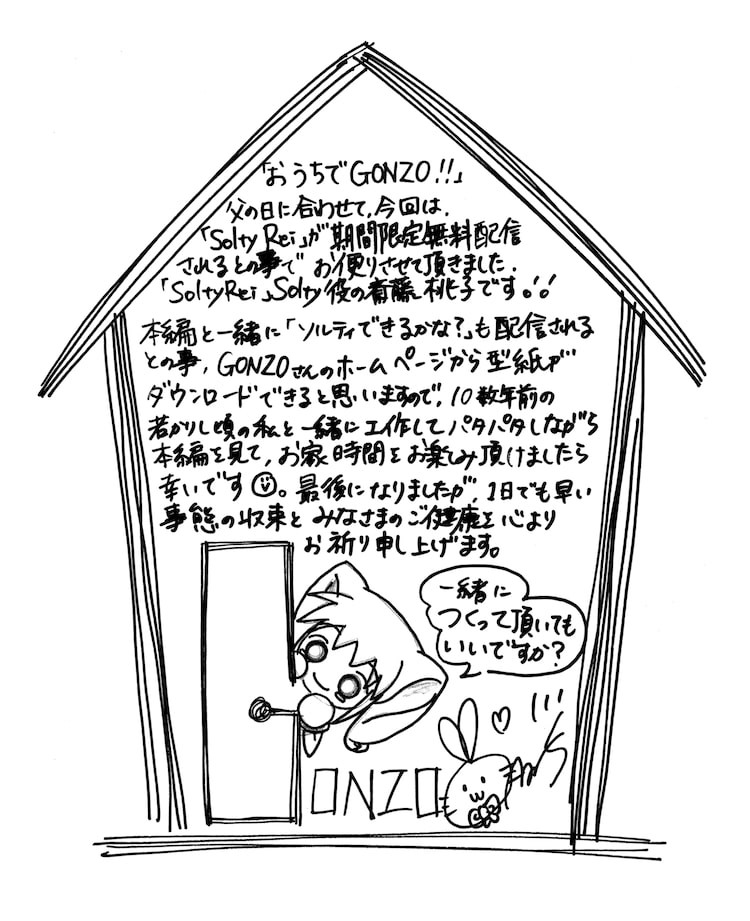 「おうちでGONZO!!」
父の日に合わせて、今回は、
「Solty Rei」が期間限定無料配信
されるとの事で お便りさせて頂きました。
「SoltyRei」Solty役の斎藤 桃子です!!
本編と一緒に「ソルティできるかな?」も配信される
との事、GONZOさんのホームページから型紙が
ダウンロードできると思いますので、10数年前の
若かりし頃の私と一緒に工作してパタパタしながら
本編を見て、お家時間をお楽しみ頂けましたら
幸いです。最後になりましたが、1日でも早い
事態の収束と みなさまのご健康を心より
お祈り申し上げます。
一緒に
つくって頂いても
いいですか?
ONZO